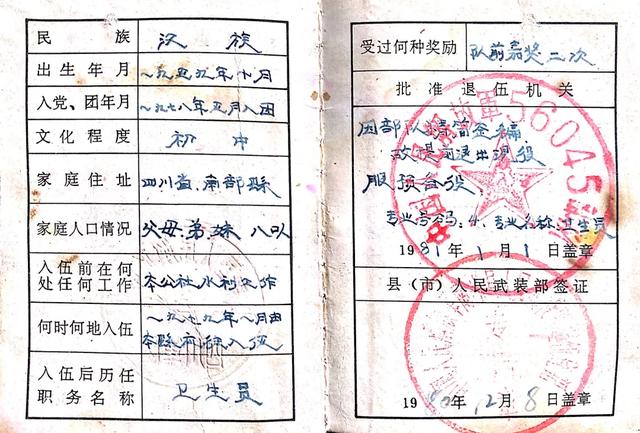 民族 汉族
出生年月 一九五九年十月
入党、团年月 一九七八年五月入团
文化程度 初中
家庭住址 四川省南部縣
家庭人口情况 父母弟妹 八口人
入伍前在何
处任何工作 本公社水利工作
何时何地入伍 一九七九年一月由
本縣入伍
入伍后历任
职务名称 卫生员
受过何种奖励 队前嘉奖二次
批准退伍机关
因部队精简整编
故提前退出现役
服预备役
专业号码:4、专业名称:卫生员
1981年1月1日盖章
56045
县(市)人民武装部签证
1980年12月8日盖章